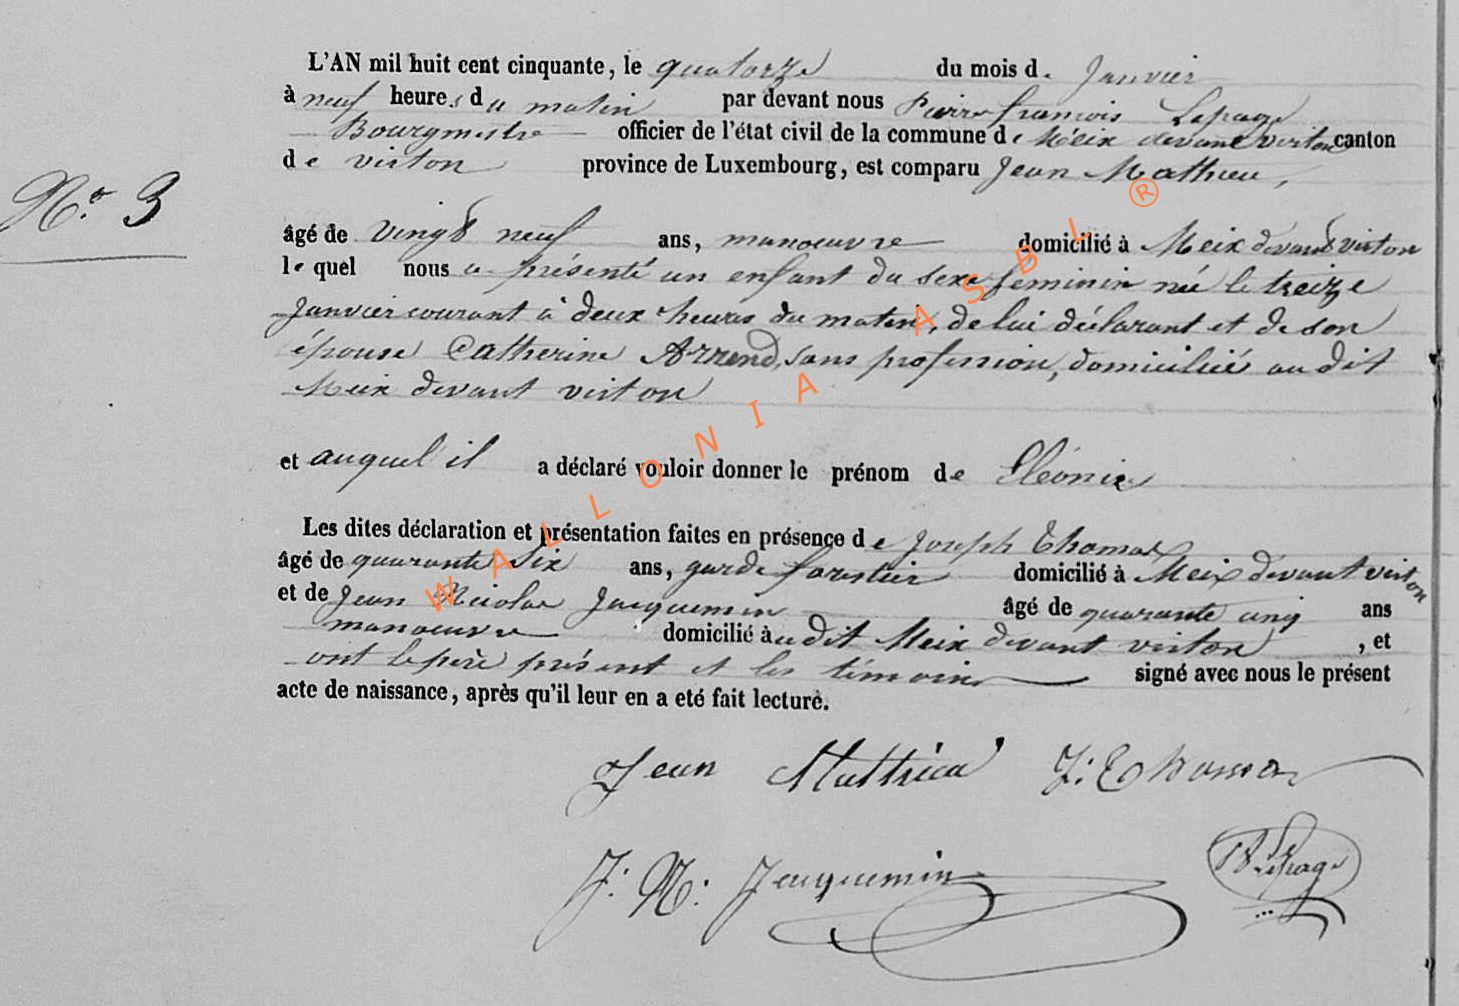 L'AN mil huit cent cinquante, le quatorze du mois d. Janvier
à neuf heures du matin par devant nous Pierre françois Lepage
Bourgmestre officier de l'état civil de la commune de Meix devant virton canton
de virton province de Luxembourg, est comparu Jean Mathieu,
N.o 3
âgé de vingt neuf ans, manoeuvre domicilié à Meix devant virton
lequel nous a présenté un enfant du sexe feminin née le treize
Janvier courant à deux heures du matin, de lui déclarant et de son
épouse Catherine Arrend, sans profession, domiciliée au dit
Meix devant virton
et auquel il a déclaré vouloir donner le prénom de Éléonie
Les dites déclaration et présentation faites en présence de Joseph Thomas
âgé de quarante six ans, garde forestier domicilié à Meix devant virton
et de Jean Nicolas Jacquemin âgé de quarante cinq ans
manoeuvre domicilié au dit Meix devant virton, et
ont le père présent et les témoins signé avec nous le présent
acte de naissance, après qu'il leur en a eté fait lecture.
Jean Mathieu J: Thomas
J: N: Jacquemin Lepage
WALLONIA ASBL ®